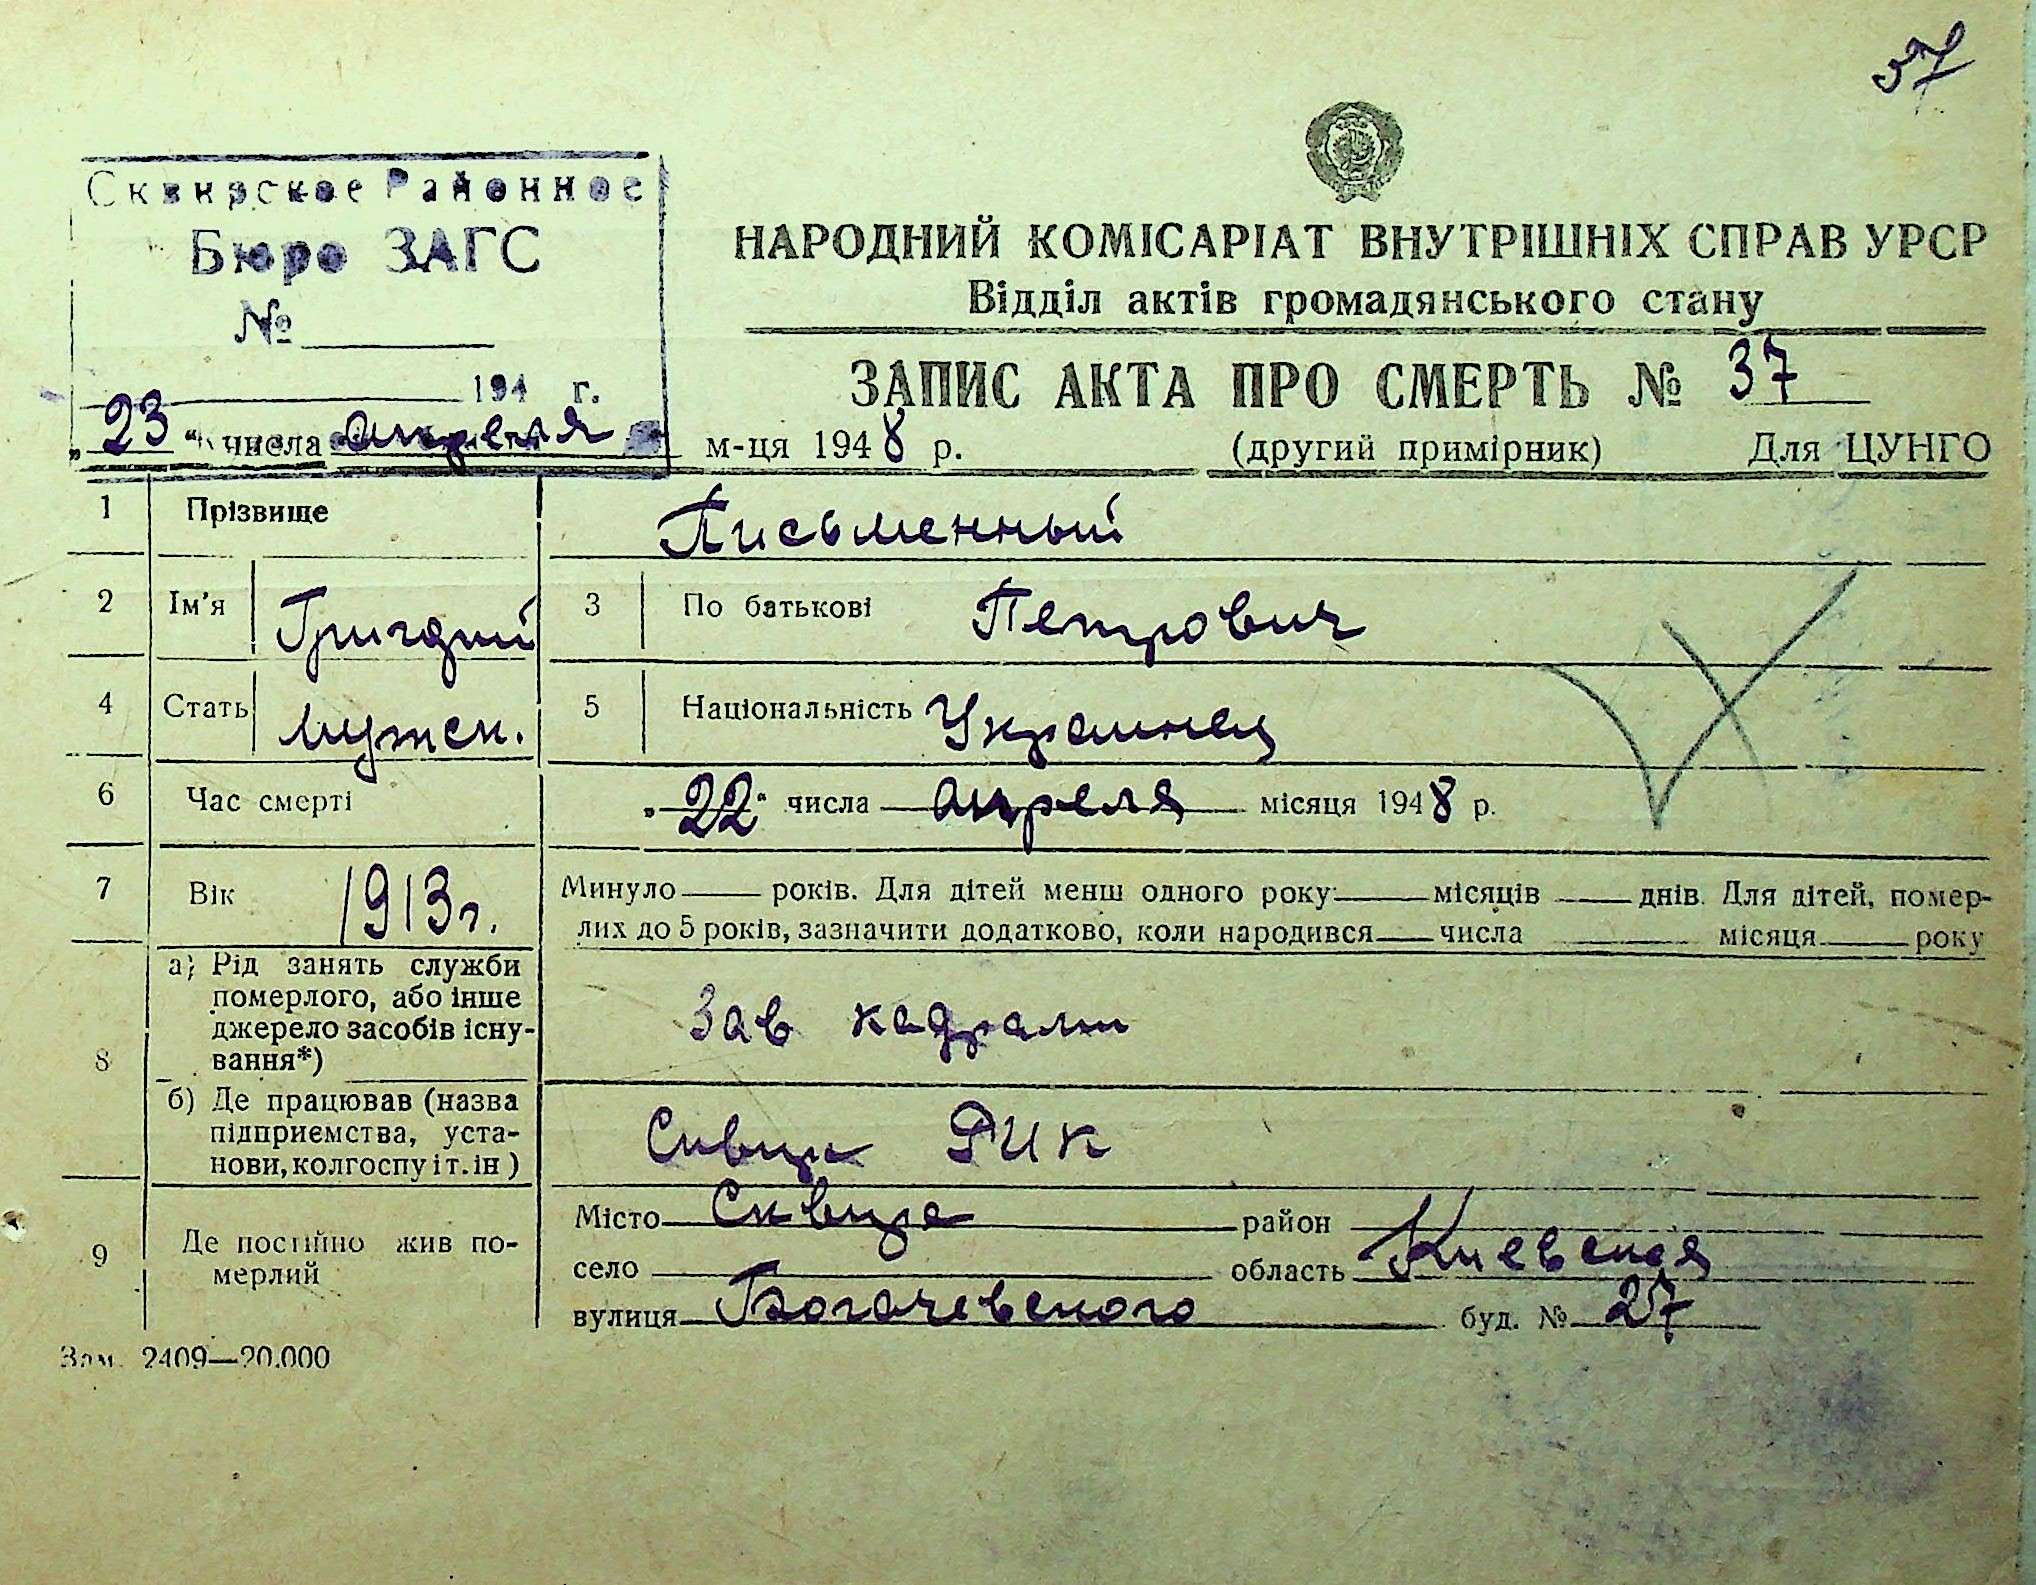 37
Сквирское Районное
Бюро ЗАГС
№
194 г.
НАРОДНИЙ КОМІСАРІАТ ВНУТРІШНІХ СПРАВ УРСР
Відділ актів громадянського стану
ЗАПИС АКТА ПРО СМЕРТЬ № 37
„23“ числа апреля м-ця 1948 р. (другий примірник) Для ЦУНГО
1 Прізвище Письменный
2 Ім'я Григорий 3 По батькові Петрович
4 Стать мужск. 5 Національність Украинец
6 Час смерті „22“ числа апреля місяця 1948 р.
7 Вік 1913 г. Минуло років. Для дітей менш одного року: місяців днів. Для дітей, помер-
лих до 5 років, зазначити додатково, коли народився числа місяця року
8 а) Рід занять служби
померлого, або інше
джерело засобів існу-
вання*)
Зав кадрами
б) Де працював (назва
підприємства, уста-
нови, колгоспу і т. ін)
Сквир РИК
9 Де постійно жив по-
мерлий
Місто Сквира район
село область Киевская
вулиця Богачевского буд. № 27
Зам. 2409—20.000